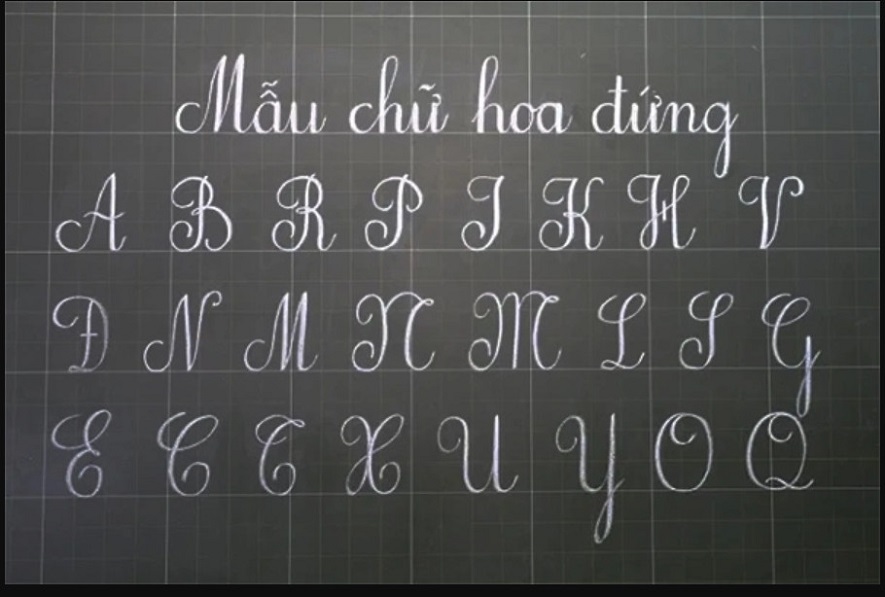 Mẫu chữ hoa đứng
A B R P I K H V
Đ N M N M L S G
E C T X U Y O Q